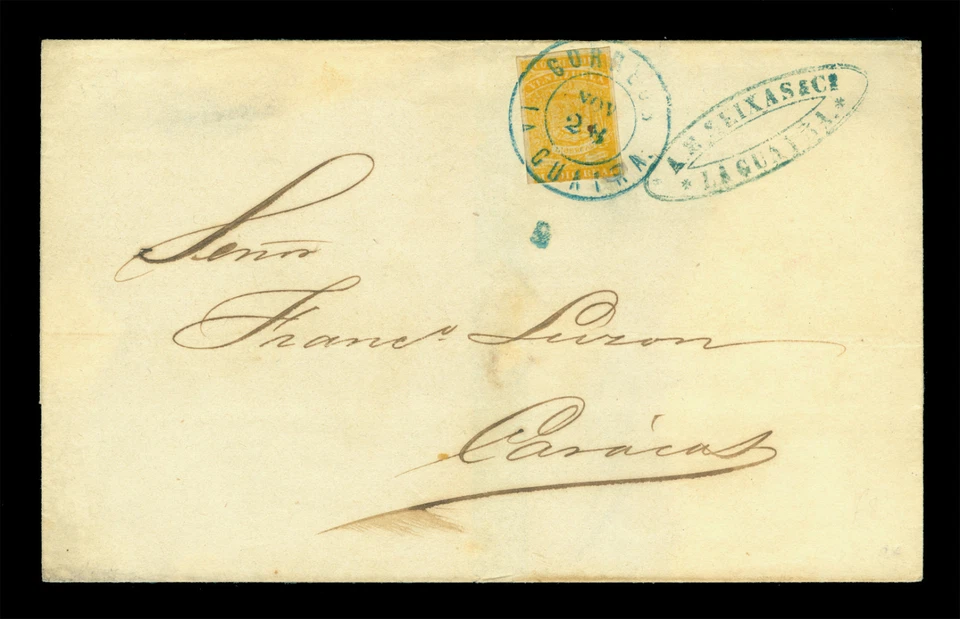 CORREOS
LA GUAIRA.
NOV
A. E. SEIXAS & Cª
* LAGUAIRA. *
Señor
Franco. Luzon
Carácas